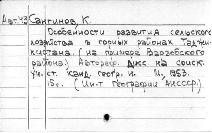 Авт.43 Сангинов, К.
Особенности развития сельского
хозяйства в горных районах Таджи-
кистана. (на примере Варзобского
района). Автореф. дисс на соиск.
уч. ст. канд. геогр. н. М., 1953.
15с. (Ин-т географии АНСССР.)